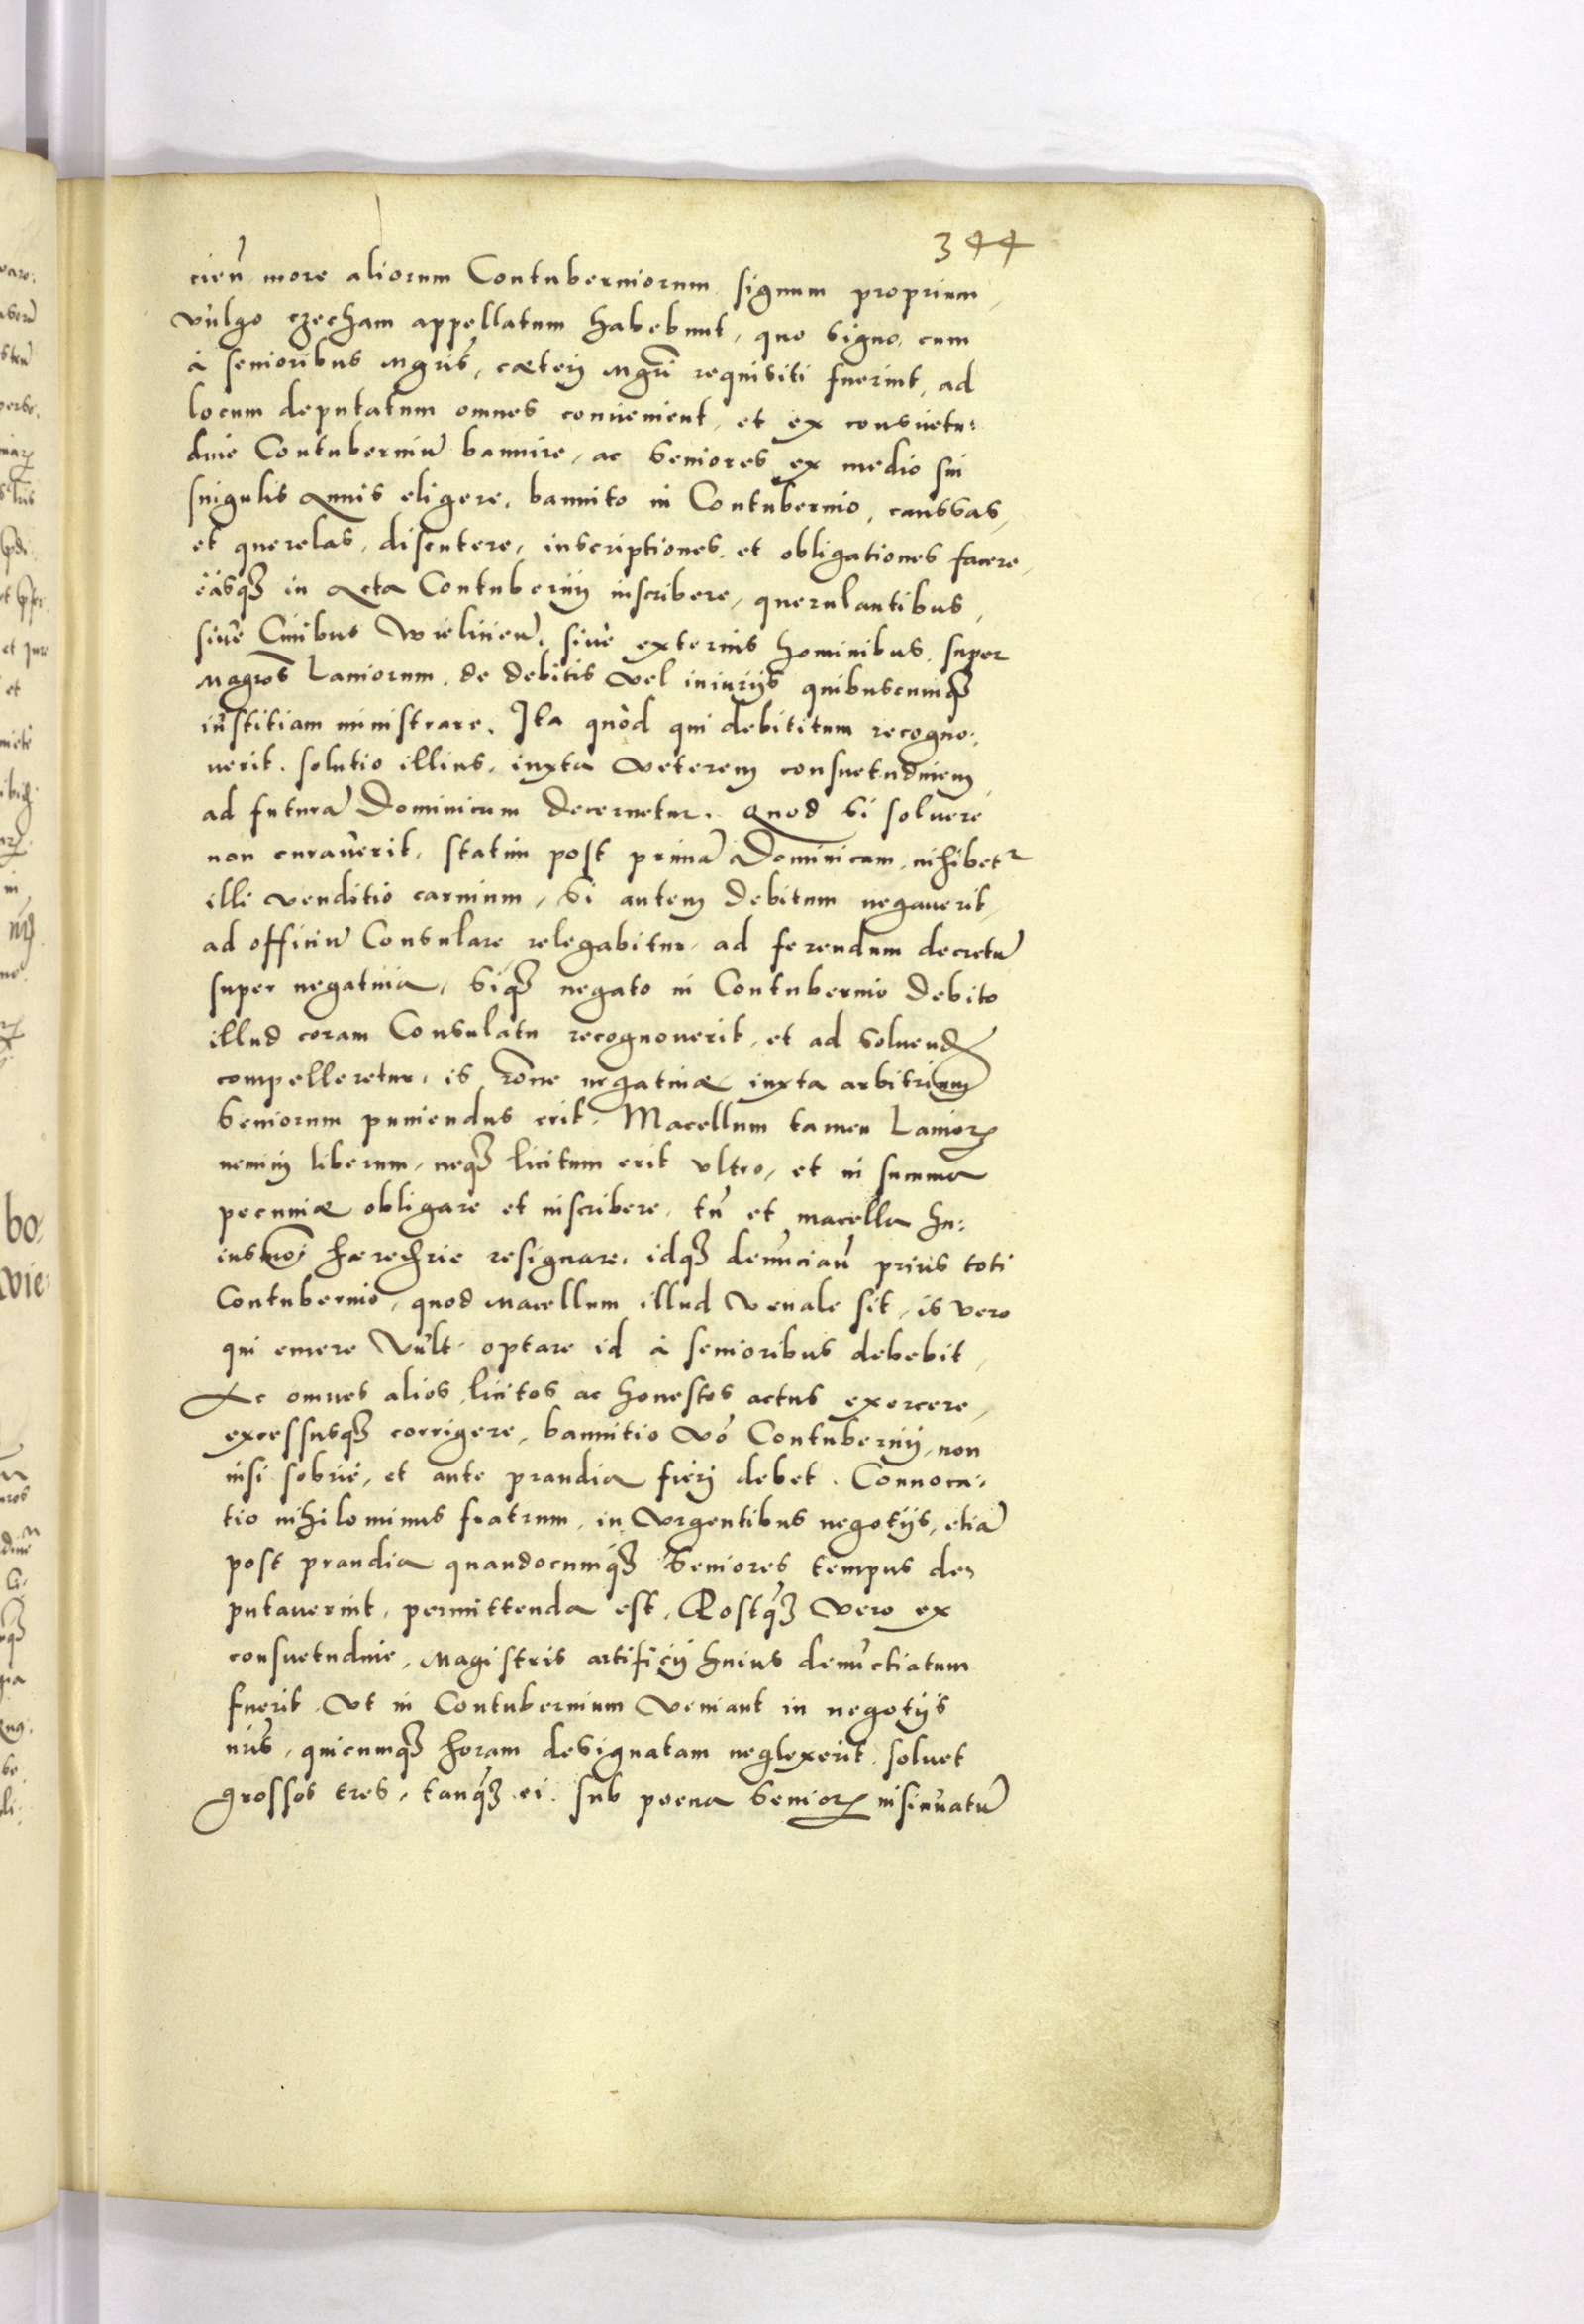 344
cieñ more aliorum Contuberniorum signum proprium,
vulgo czecham appellatum habebunt, quo signo, cum
à senioribus Mgris, cæterij Mgri requisiti fuerint, ad
locum deputatum omnes convenient, et ex consuetu:
dine Contuberniũ bannire, ac Seniores ex medio sui
singulis Annis eligere, bannito in Contubernio, caussas,
et querelas, discutere, inscriptiones, et obligationes facere,
easqꝫ in Acta Contubernij inscribere, querulantibus,
siue Ciuibus Wielicieñ, siue externis hominibus, super
Magros Laniorum, de debitis vel iniurijs quibuscunqꝫ
iustitiam ministrare. Ita quòd qui debititum recogno:
uerit, solutio illius, iuxta veterem consuetudinem
ad futurã Dominicum decernetur. Quod si soluere
non curauerit, statim post primã Dominicam, inhibetr
illi venditio carnium, Si autem debitum negauerit,
ad officiũ Consulare relegabitur, ad ferendum decretũ
super negatiua, Siqꝫ negato in Contubernio debito
illud coram Consulatu recognouerit, et ad soluend
compelleretur, is rõne negatiuæ iuxta arbitrium
Seniorum puniendus erit. Macellum tamen Laniorꝝ
nemini liberum, neqꝫ licitum erit vltro, et in summa
pecuniæ obligare et inscribere, tñ et macella hu:
iusmoi hærechrie resignare, idqꝫ denunciañ prius toti
Contubernio, quod Macellum illud Venale sit, is vero
qui emere Vult optare id à senioribus debebit,
Ac omnes alios licitos ac honestos actus exercere,
excessusqꝫ corrigere, bannitio võ Contubernij, non
nisi sobriè, et ante prandia fieri debet. Conuoca:
tio nihilominus fratrum, in Vrgentibus negotijs, etiã
post prandia quandocunqꝫ Seniores tempus de:
putauerint, permittenda est. Postqꝫ Vero ex
consuetudine, Magistris artificij huius denuctiatum
fuerit, Vt in Contubernium Veniant in negotijs
nris, quicumqꝫ horam designatam neglexerit, soluet
grossos tres, tanqꝫ ei sub poena Seniorꝝ insinuatũ